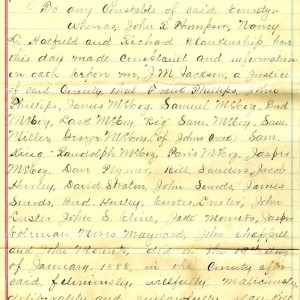 To any Constable of said County:
Whereas, John B. Thompson, Nancy
L. Hatfield and Richard Blankenship, have
this day made complaint and information
on oath before me, J.M. Jackson, a Justice
of said County that Frank Phillips, John
Phillips, James McCoy, Samuel McCoy, Bud
McCoy, Lark McCoy "Big" Sam. McCoy, Sam.
Miller, George McCoy, (of Johns Creek) Sam.
King - Randolph McCoy, Paris McCoy, Jasper
McCoy, Dave Plymer, Bill Sanders, Jacob
Hurley, David Straton, John Smith, James
Bud. Hurley, Curtis Lester, John
Lester, John S. Cline, Jake Mounts, Jasper
Coleman Moses Maynard, John Chappill
and John Mounts, did on the 19th day
of January, 1888, in the County afore
said feloniously, willfully, Maliciously
deliberately and unlawfully slay, kill